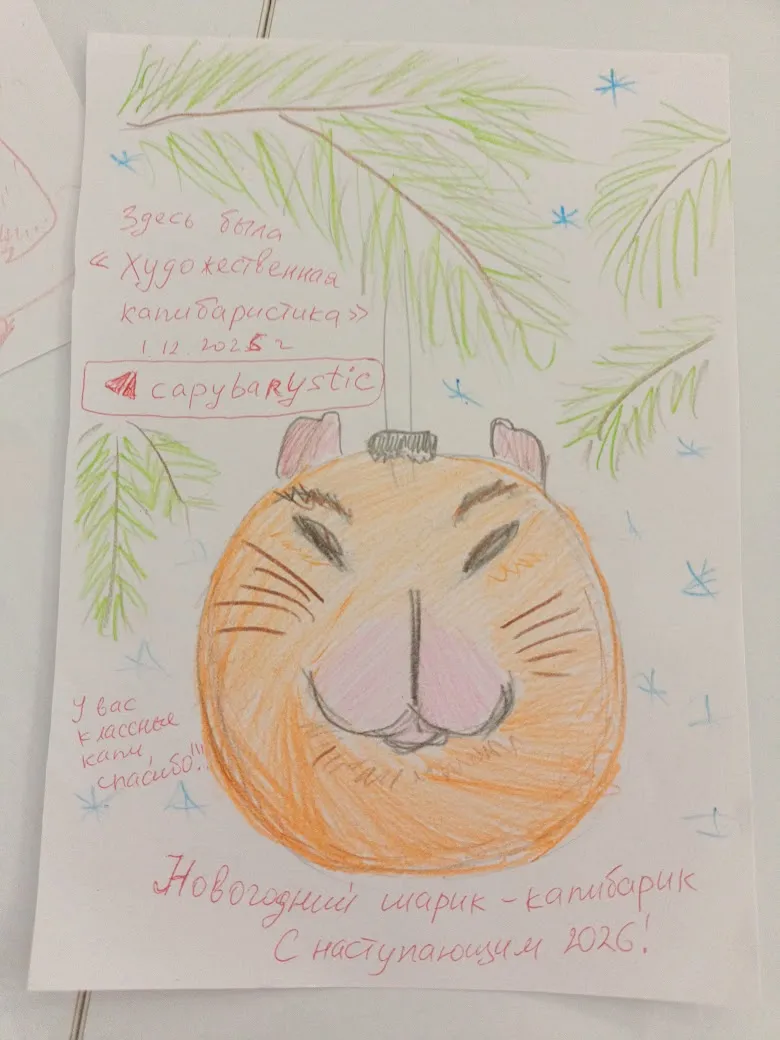 Здесь была
«Художественная
капибаристика»
1.12.2025 г
capybarystic
У вас
классные
капи,
спасибо!!!
Новогодний шарик-капибарик
С наступающим 2026!